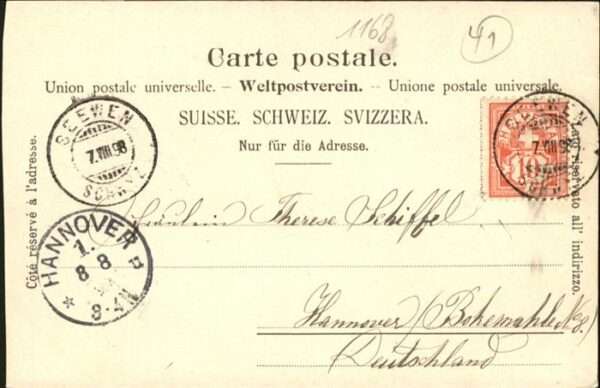 1168
41
Carte postale.
Union postale universelle. – Weltpostverein. – Unione postale universale.
SUISSE. SCHWEIZ. SVIZZERA.
Nur für die Adresse.
Côté réservé à l'adresse.
Lato riservato all' indirizzo.
SEEWEN
7.VIII.98
SCHWYZ
SEEWEN
7.VIII.98
10
HANNOVER
1.
8 8
8-9N
Fräulein Therese Schiffel
Hannover/Bohemahle No 8.
Deutschland